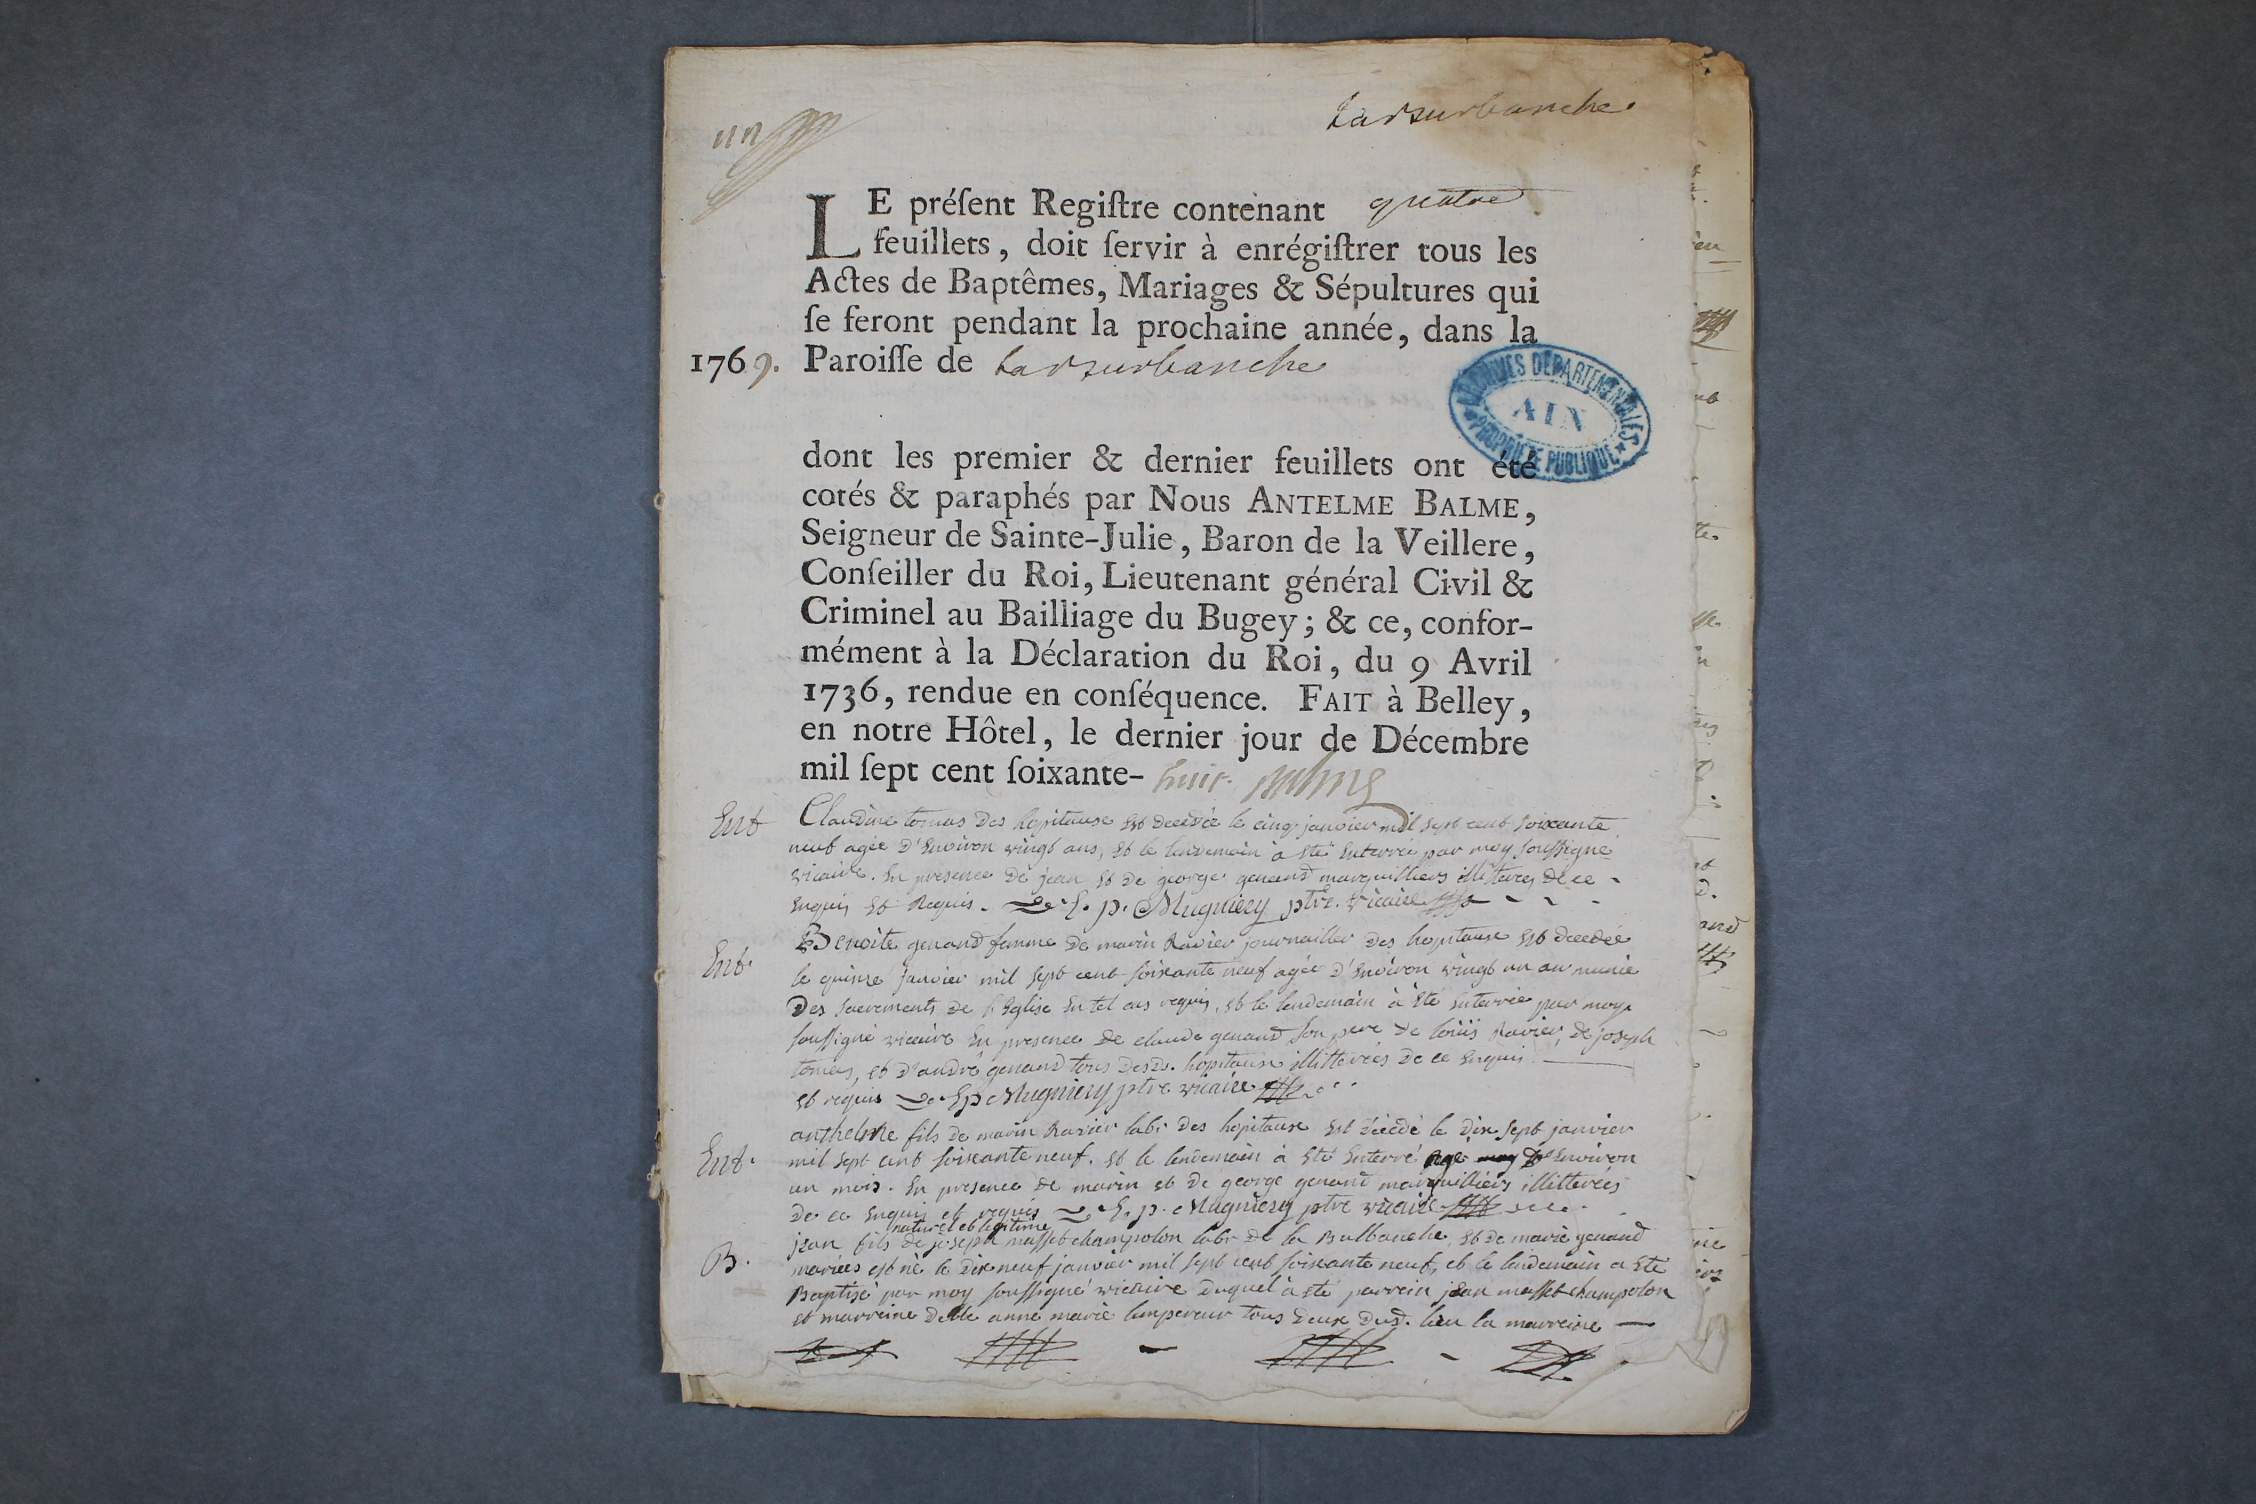 un
Larsurbanche.
LE préſent Regiſtre contenant quatre
feuillets, doit ſervir à enrégiſtrer tous les
Actes de Baptêmes, Mariages & Sépultures qui
ſe feront pendant la prochaine année, dans la
1769. Paroiſſe de Larsurbanche
ARCHIVES DÉPARTEMENTALES
AIN
PROPRIÉTÉ PUBLIQUE
dont les premier & dernier feuillets ont été
cotés & paraphés par Nous ANTELME BALME,
Seigneur de Sainte-Julie, Baron de la Veillere,
Conſeiller du Roi, Lieutenant général Civil &
Criminel au Bailliage du Bugey; & ce, confor-
mément à la Déclaration du Roi, du 9 Avril
1736, rendue en conſéquence. FAIT à Belley,
en notre Hôtel, le dernier jour de Décembre
mil ſept cent ſoixante-huit. Balme
Ent Claudine des hopitaux est decedée le cinq janvier mil sept cent soixante
neuf agée d'environ vingt ans, et le lendemain à eté enterrée par moy soussigné
vicaire. En presence de jean et de george genand marguilliers illiteres de ce
enquis et Requis. E. p. Mugniery ptre. vicaire
Ent. Benoite genand femme de marin Ravier journailler des hopitaux est decedée
le quinze janvier mil sept cent soixante neuf agée d'environ vingt un an munie
des sacrements de l'Eglise en tel cas requis, et le lendemain à eté enterrée par moy
soussigné vicaire En presence de claude genand son pere de loüis Ravier, de joseph
et d'andré genand tous desds. hopitaux illitterés de ce enquis
et requis E p Mugniery ptre vicaire
Ent. anthelme fils de marin Ravier labr des hopitaux est décedé le dix sept janvier
mil sept cent soixante neuf. et le lendemain à eté enterré agé d'environ
un mois. En presence de marin et de george genand marguilliers illitterés
de ce enquis et requis E. p. Mugniery ptre vicaire
naturel et legitime
B. jean fils de joseph masset champolon labr de la Balbanche, et de marie genand
mariées est né le dix neuf janvier mil sept cent soixante neuf, et le lendemain a eté
Baptisé par moy soussigné vicaire duquel à eté parrein jean masset champolon
et marreine delle anne marie lempereur tous deux dud. lieu la marreine